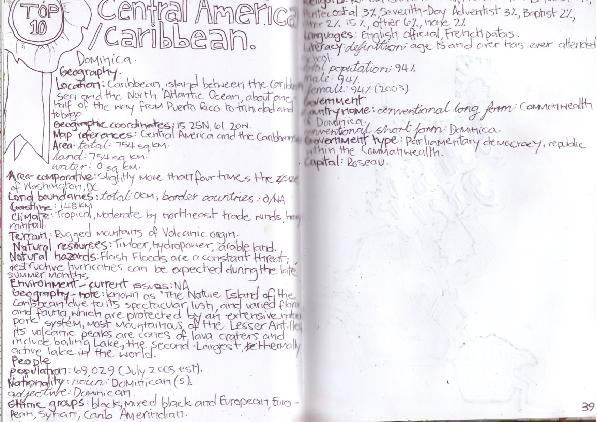 TOP
10
Central America
/Caribbean.
Dominica.
Geography.
Location: Caribbean, island between the Caribbean
sea and the North Atlantic Ocean, about one
half of the way from Puerto Rico to Trinidad and
tobago
Geographic coordinates: 15 25N, 61 20W.
Map references: Central America and the Caribbean
Area: total: 754 sq km.
land: 754 sq km.
water: 0 sq km.
Area comparative: slightly more than four times the size
of Washington, DC
Land boundaries: total: 0km, border countries: 0/NA
Coastline: 148 km
Climate: Tropical, moderate by northeast trade winds, heavy
rainfall.
Terrain: Rugged mountains of Volcanic origin.
Natural resources: Timber, hydropower, arable land.
Natural hazards: Flash Floods are a constant threat;
destructive hurricanes can be expected during the late
summer months.
Environment - current issues: NA
Geography - note: known as "The Nature Island of the
Caribbean due to its spectacular, lush, and varied flora
and fauna, which are protected by an extensive
park system, most mountainous of the Lesser Antilles
its volcanic peaks are cones of lava craters and
include boiling Lake, the second-largest, thermally
active lake in the world.
People
population: 69,029 (July 2005 est).
Nationality: noun: Dominican (s).
adjective: Dominican.
Ethnic groups: black, mixed black and European, Euro-
pean, Syrian, Carib Amerindian.
Pentecostal 3%, Seventh-Day Adventist 3%, Baptist 2%,
2%, 15%, other 6%, none 2%
Languages: English official, French patois.
Literacy definition: age 15 and over has ever attended
school
total population: 94%
male: 94%
female: 94% (2003)
Government
Country name: conventional long form: Commonwealth
of Dominica.
conventional short form: Dominica.
Government type: Parliamentary democracy, republic
within the Commonwealth.
Capital: Roseau.
39